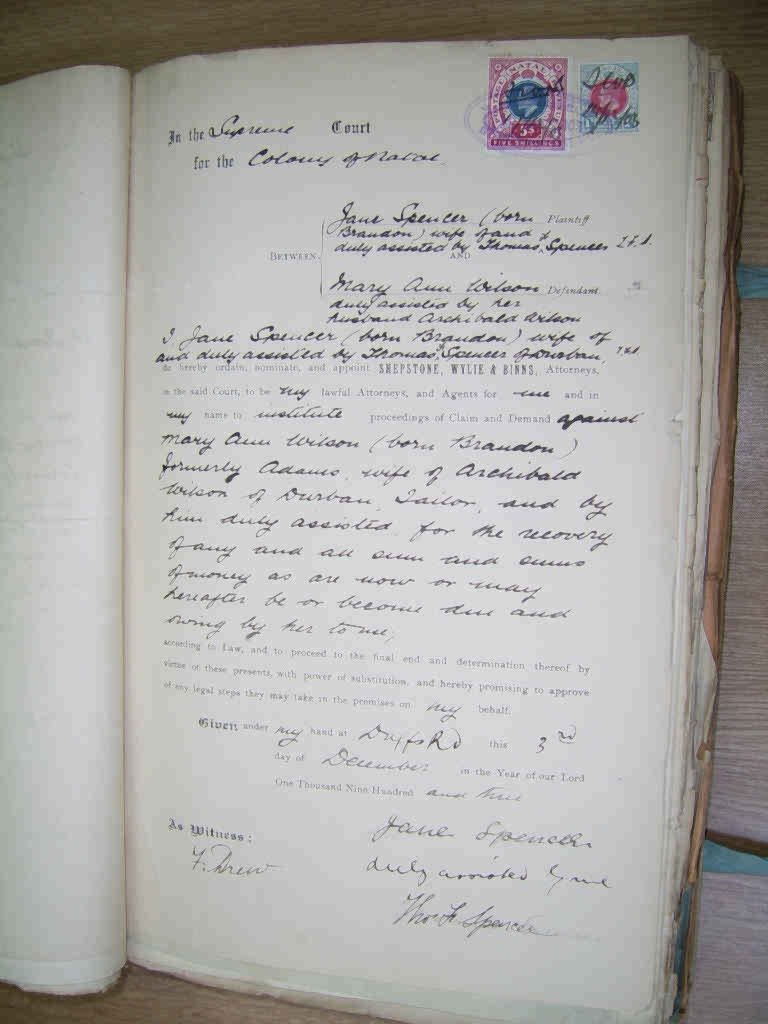 In the Supreme Court
for the Colony of Natal
POSTAGE NATAL REVENUE
5s
FIVE SHILLINGS
Jane Spencer (born Plaintiff
Brandon) wife of and
duly assisted by Thomas H Spencer
BETWEEN AND
Mary Ann Wilson Defendant.
duly assisted by her
husband Archibald Wilson
I, Jane Spencer (born Brandon) wife of
and duly assisted by Thomas H Spencer of Durban,
do hereby ordain, nominate, and appoint SHEPSTONE, WYLIE & BINNS, Attorneys,
in the said Court, to be my lawful Attorneys, and Agents for me and in
my name to institute proceedings of Claim and Demand against
Mary Ann Wilson (born Brandon)
formerly Adams, wife of Archibald
Wilson of Durban, Tailor, and by
him duly assisted, for the recovery
of any and all sum and sums
of money as are now or may
hereafter be or become due and
owing by her to me,
according to Law, and to proceed to the final end and determination thereof by
virtue of these presents, with power of substitution, and hereby promising to approve
of any legal steps they may take in the premises on my behalf.
Given under my hand at Duffs Rd this 3rd
day of December in the Year of our Lord
One Thousand Nine Hundred and
As Witness:
Jane Spencer
F. Drew
duly assisted by me
Thos H Spencer